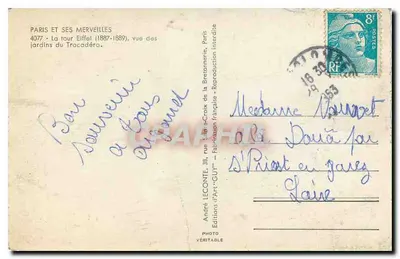 PARIS ET SES MERVEILLES
4077 - La tour Eiffel (1887-1889), vue des
jardins du Trocadéro.
Bon
souvenir
a tous
André LECONTE, 38, rue Ste-Croix de la Bretonnerie, Paris
Editions d'Art "GUY" - Fabrication française - Reproduction interdite
PHOTO
VÉRITABLE
8F
RF
16 30
Madame
a la Două par
St Priest en Jarez
Loire